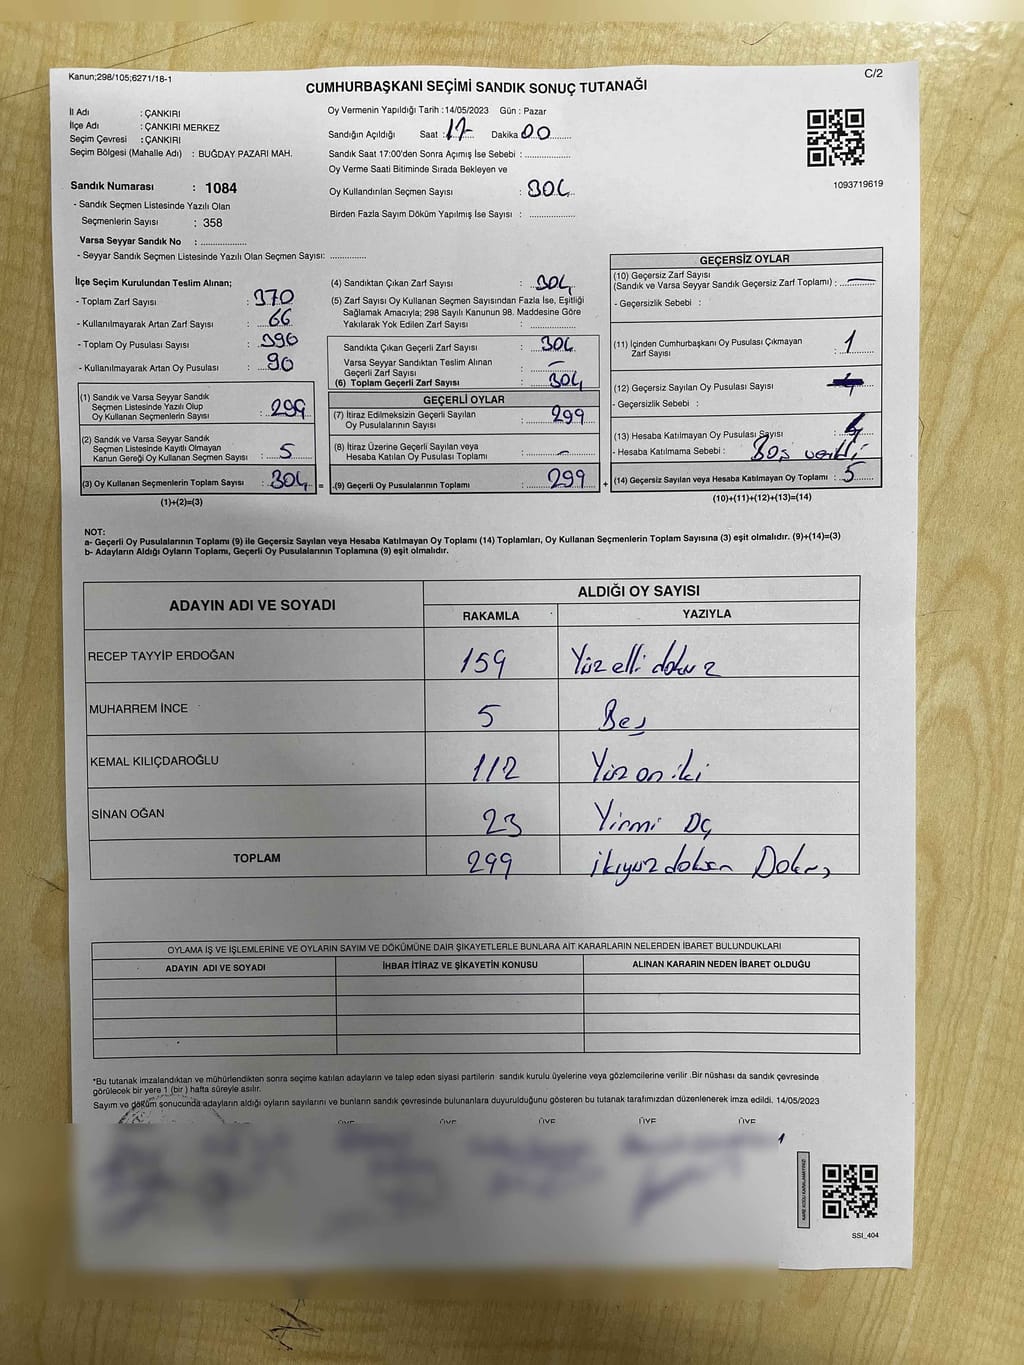 Kanun;298/105;6271/18-1
C/2
CUMHURBAŞKANI SEÇİMİ SANDIK SONUÇ TUTANAĞI
İl Adı : ÇANKIRI
İlçe Adı : ÇANKIRI MERKEZ
Seçim Çevresi : ÇANKIRI
Seçim Bölgesi (Mahalle Adı) : BUĞDAY PAZARI MAH.
Oy Vermenin Yapıldığı Tarih : 14/05/2023 Gün : Pazar
Sandığın Açıldığı Saat : 17 Dakika 00
Sandık Saat 17:00'den Sonra Açımış İse Sebebi :
Oy Verme Saati Bitiminde Sırada Bekleyen ve
Oy Kullandırılan Seçmen Sayısı : 304
Birden Fazla Sayım Döküm Yapılmış İse Sayısı :
1093719619
Sandık Numarası : 1084
- Sandık Seçmen Listesinde Yazılı Olan
Seçmenlerin Sayısı : 358
Varsa Seyyar Sandık No :
- Seyyar Sandık Seçmen Listesinde Yazılı Olan Seçmen Sayısı:
İlçe Seçim Kurulundan Teslim Alınan;
- Toplam Zarf Sayısı : 370
- Kullanılmayarak Artan Zarf Sayısı : 66
- Toplam Oy Pusulası Sayısı : 390
- Kullanılmayarak Artan Oy Pusulası : 90
(1) Sandık ve Varsa Seyyar Sandık
Seçmen Listesinde Yazılı Olup
Oy Kullanan Seçmenlerin Sayısı : 299
(2) Sandık ve Varsa Seyyar Sandık
Seçmen Listesinde Kayıtlı Olmayan
Kanun Gereği Oy Kullanan Seçmen Sayısı : 5
(3) Oy Kullanan Seçmenlerin Toplam Sayısı : 304
(1)+(2)=(3)
(4) Sandıktan Çıkan Zarf Sayısı : 304
(5) Zarf Sayısı Oy Kullanan Seçmen Sayısından Fazla İse, Eşitliği
Sağlamak Amacıyla; 298 Sayılı Kanunun 98. Maddesine Göre
Yakılarak Yok Edilen Zarf Sayısı :
Sandıkta Çıkan Geçerli Zarf Sayısı : 304
Varsa Seyyar Sandıktan Teslim Alınan
Geçerli Zarf Sayısı : —
(6) Toplam Geçerli Zarf Sayısı : 304
GEÇERLİ OYLAR
(7) İtiraz Edilmeksizin Geçerli Sayılan
Oy Pusulalarının Sayısı : 299
(8) İtiraz Üzerine Geçerli Sayılan veya
Hesaba Katılan Oy Pusulası Toplamı : —
= (9) Geçerli Oy Pusulalarının Toplamı : 299
GEÇERSİZ OYLAR
(10) Geçersiz Zarf Sayısı
(Sandık ve Varsa Seyyar Sandık Geçersiz Zarf Toplamı) : —
- Geçersizlik Sebebi :
(11) İçinden Cumhurbaşkanı Oy Pusulası Çıkmayan
Zarf Sayısı : 1
(12) Geçersiz Sayılan Oy Pusulası Sayısı :
- Geçersizlik Sebebi :
(13) Hesaba Katılmayan Oy Pusulası Sayısı : 4
- Hesaba Katılmama Sebebi : Boş
+ (14) Geçersiz Sayılan veya Hesaba Katılmayan Oy Toplamı : 5
(10)+(11)+(12)+(13)=(14)
NOT:
a- Geçerli Oy Pusulalarının Toplamı (9) ile Geçersiz Sayılan veya Hesaba Katılmayan Oy Toplamı (14) Toplamları, Oy Kullanan Seçmenlerin Toplam Sayısına (3) eşit olmalıdır. (9)+(14)=(3)
b- Adayların Aldığı Oyların Toplamı, Geçerli Oy Pusulalarının Toplamına (9) eşit olmalıdır.
ADAYIN ADI VE SOYADI
ALDIĞI OY SAYISI
RAKAMLA YAZIYLA
RECEP TAYYİP ERDOĞAN 159 Yüz elli dokuz
MUHARREM İNCE 5 Beş
KEMAL KILIÇDAROĞLU 112 Yüz on iki
SİNAN OĞAN 23 Yirmi Üç
TOPLAM 299 ikiyüz doksan Dokuz
OYLAMA İŞ VE İŞLEMLERİNE VE OYLARIN SAYIM VE DÖKÜMÜNE DAİR ŞİKAYETLERLE BUNLARA AİT KARARLARIN NELERDEN İBARET BULUNDUKLARI
ADAYIN ADI VE SOYADI İHBAR İTİRAZ VE ŞİKAYETİN KONUSU ALINAN KARARIN NEDEN İBARET OLDUĞU
*Bu tutanak imzalandıktan ve mühürlendikten sonra seçime katılan adayların ve talep eden siyasi partilerin sandık kurulu üyelerine veya gözlemcilerine verilir .Bir nüshası da sandık çevresinde
görülecek bir yere 1 (bir ) hafta süreyle asılır.
Sayım ve döküm sonucunda adayların aldığı oyların sayılarını ve bunların sandık çevresinde bulunanlara duyurulduğunu gösteren bu tutanak tarafımızdan düzenlenerek imza edildi. 14/05/2023
ÜYE ÜYE ÜYE ÜYE ÜYE
SSI_404